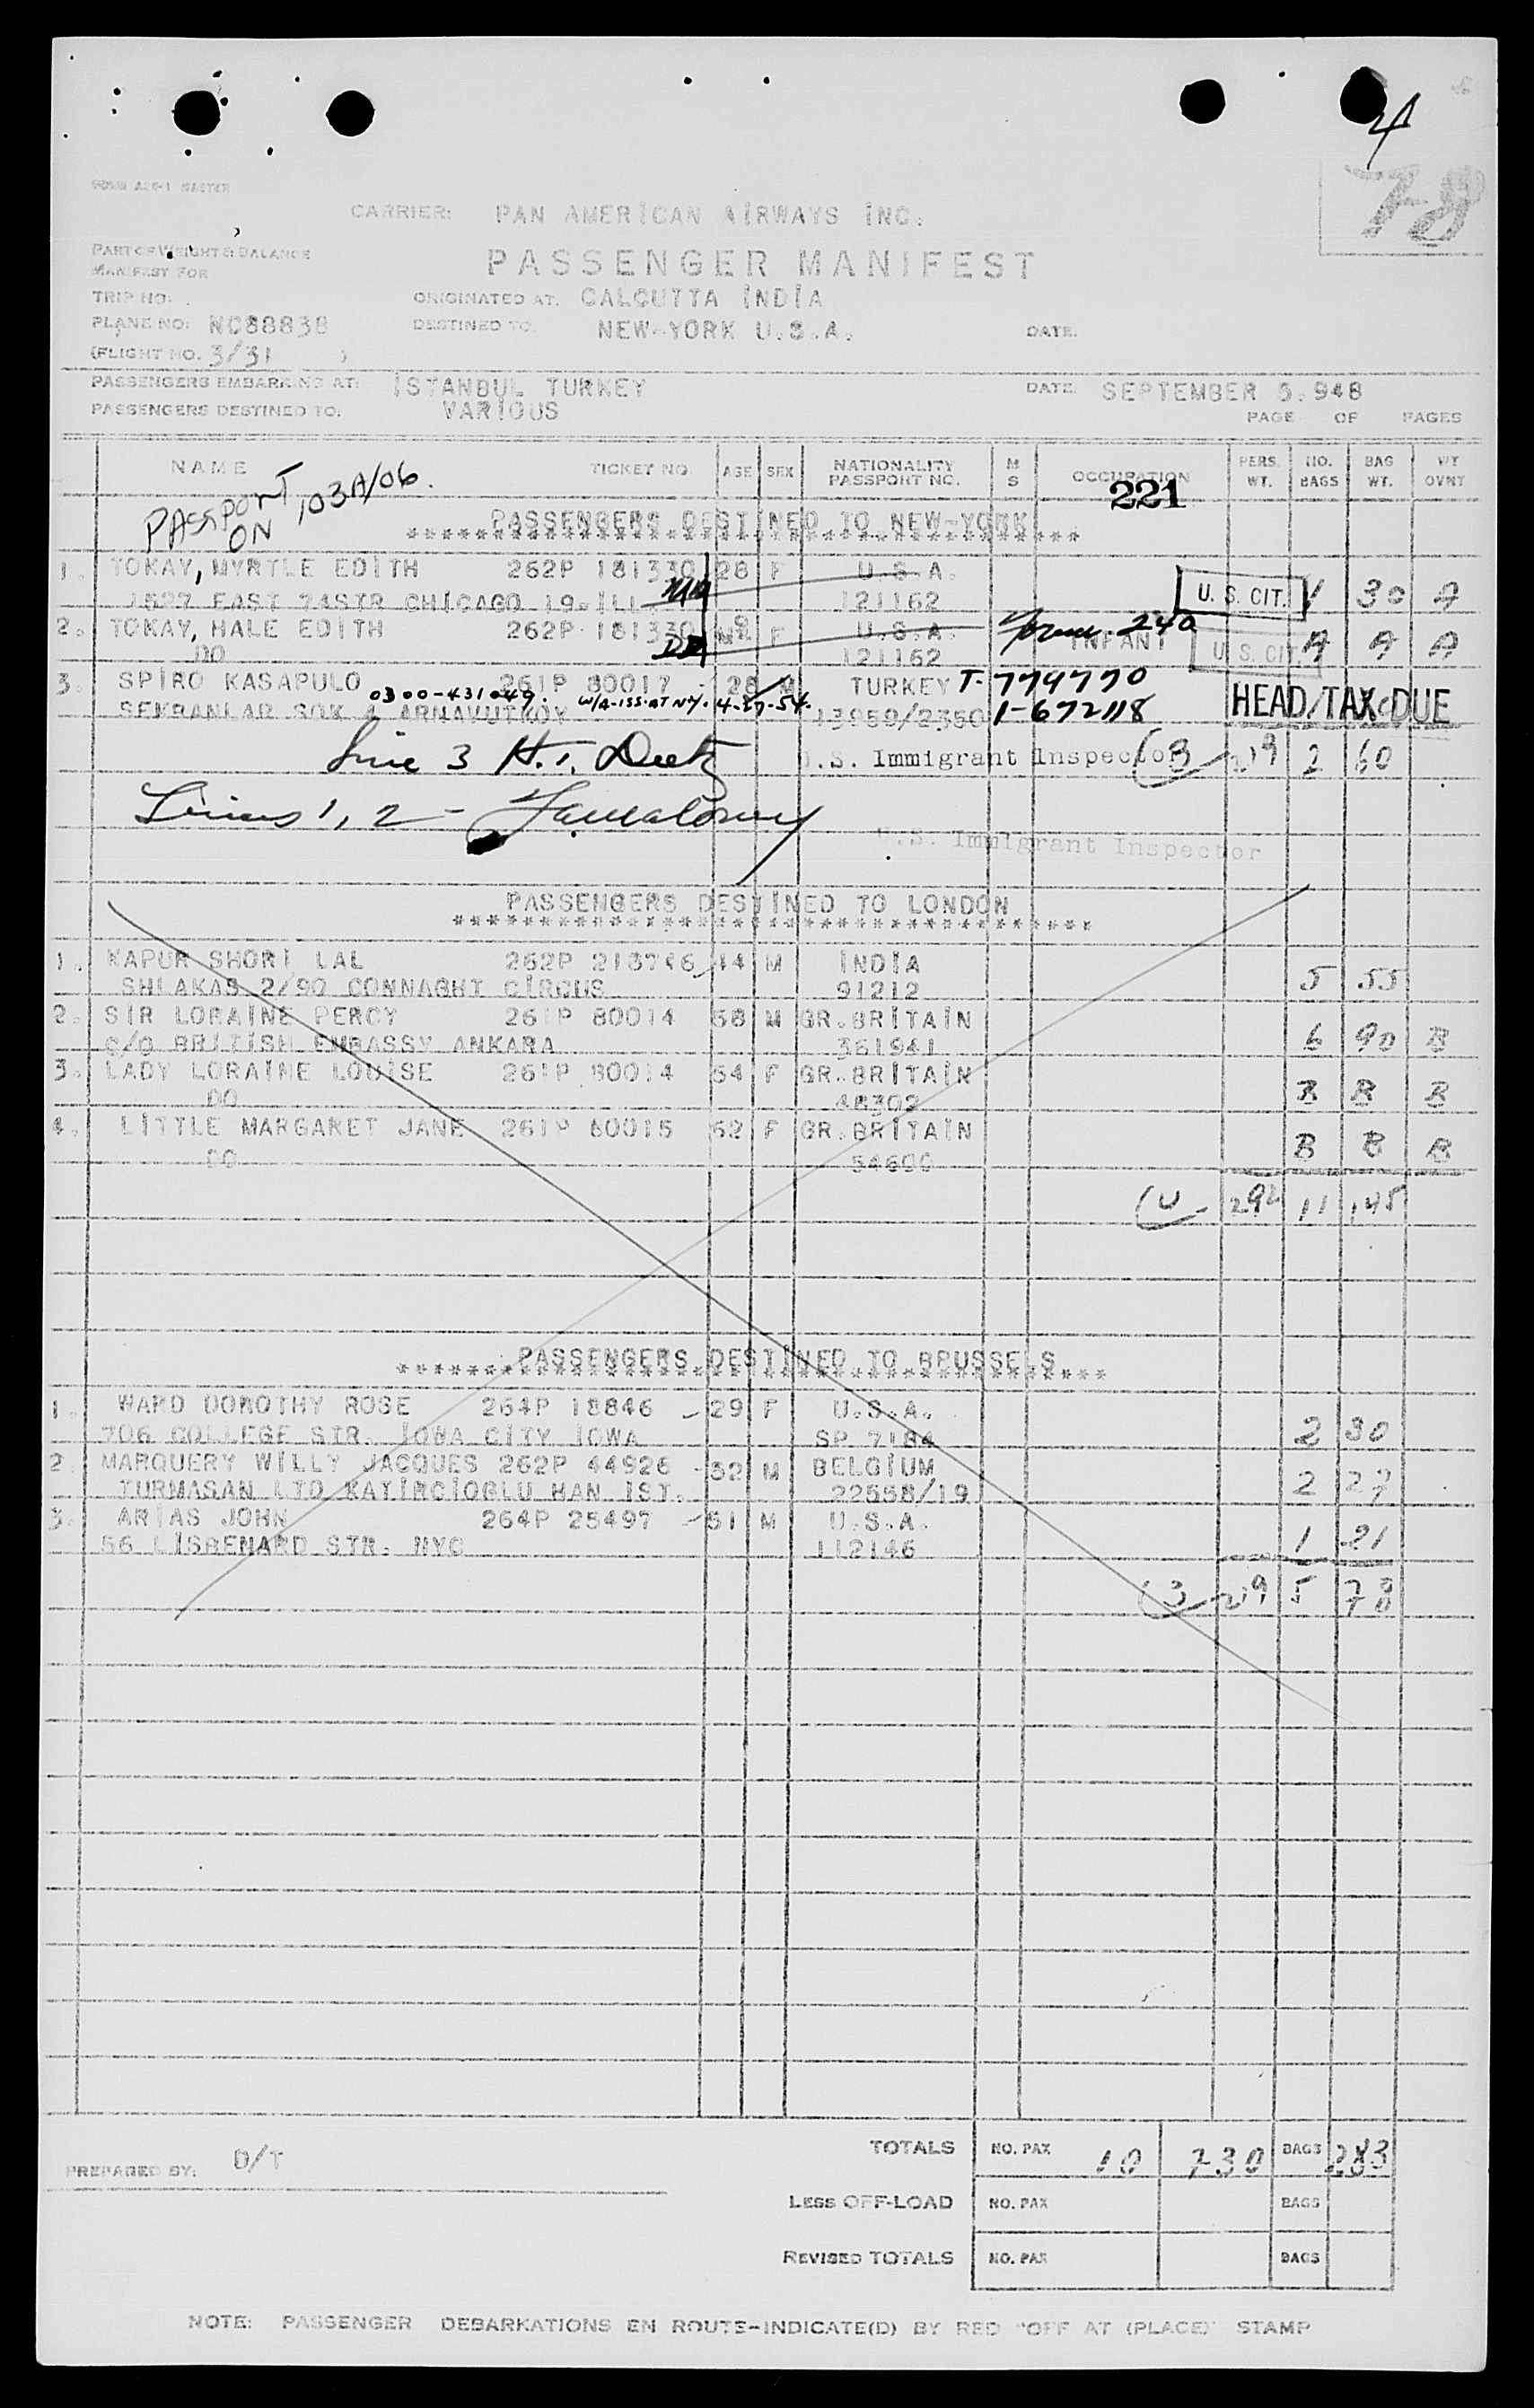 4
78
FORM A26-1 MASTER
CARRIER: PAN AMERICAN AIRWAYS INC.
PART OF WEIGHT & BALANCE
MANIFEST FOR
PASSENGER MANIFEST
TRIP NO: ORIGINATED AT. CALCUTTA INDIA
PLANE NO: NC88838 DESTINED TO. NEW-YORK U.S.A. DATE.
(FLIGHT NO. 3/31 )
PASSENGERS EMBARKING AT: ISTANBUL TURKEY DATE. SEPTEMBER 5.948
PASSENGERS DESTINED TO: VARIOUS PAGE OF PAGES
NAME TICKET NO AGE SEX NATIONALITY PASSPORT NO. M S OCCUPATION PERS. WT. NO. BAGS BAG WT. WT OVNT
221
PASSPORT ON 103A/06.
PASSENGERS DESTINED TO NEW-YORK
****************************************
1. TOKAY, MYRTLE EDITH 262P 181330 28 F U.S.A.
1527 EAST 74STR CHICAGO 19.ILL 121162 U. S. CIT. 1 30 A
2. TOKAY, HALE EDITH 262P 181330 F U.S.A. 240
DO 121162 INFANT U. S. CIT. A A A
3. SPIRO KASAPULO 261P 80017 28 M TURKEY T-779770
0300-431049. W/A-ISS-AT NY. 4-27-54.
SEKBANLAR SOK 4 ARNAVUTKOY 13959/2350 1-672118 HEAD TAX DUE
Line 3 H.T. Deetz U.S. Immigrant Inspector (3 219 2 60
Lines 1, 2 -
U.S. Immigrant Inspector
PASSENGERS DESTINED TO LONDON
**************************************
1. KAPUR SHORI LAL 262P 213746 44 M INDIA
SHLAKAS 2/90 CONNAGHT CIRCUS 91212 5 55
2. SIR LORAINE PERCY 261P 80014 68 M GR.BRITAIN
C/O BRITISH EMBASSY ANKARA 361941 6 90 B
3. LADY LORAINE LOUISE 261P 80014 54 F GR.BRITAIN
DO 48302 B B B
4. LITTLE MARGARET JANE 261P 80015 62 F GR.BRITAIN
DO 54600 B B B
(4 292 11 145
PASSENGERS DESTINED TO BRUSSELS
******************************************
1. WARD DOROTHY ROSE 264P 18846 29 F U.S.A.
706 COLLEGE STR. IOWA CITY IOWA SP 7184 2 30
2. MARQUERY WILLY JACQUES 262P 44926 32 M BELGIUM
TURMASAN LTD KATIRCIOGLU HAN IST. 22558/19 2 27
3. ARIAS JOHN 264P 25497 51 M U.S.A.
56 LISBENARD STR. NYC 112146 1 21
(3 219 5 78
TOTALS NO. PAX 10 730 BAGS 283
PREPARED BY: D/T
LESS OFF-LOAD NO. PAX BAGS
REVISED TOTALS NO. PAX BAGS
NOTE: PASSENGER DEBARKATIONS EN ROUTE-INDICATE(D) BY RED "OFF AT (PLACE)" STAMP